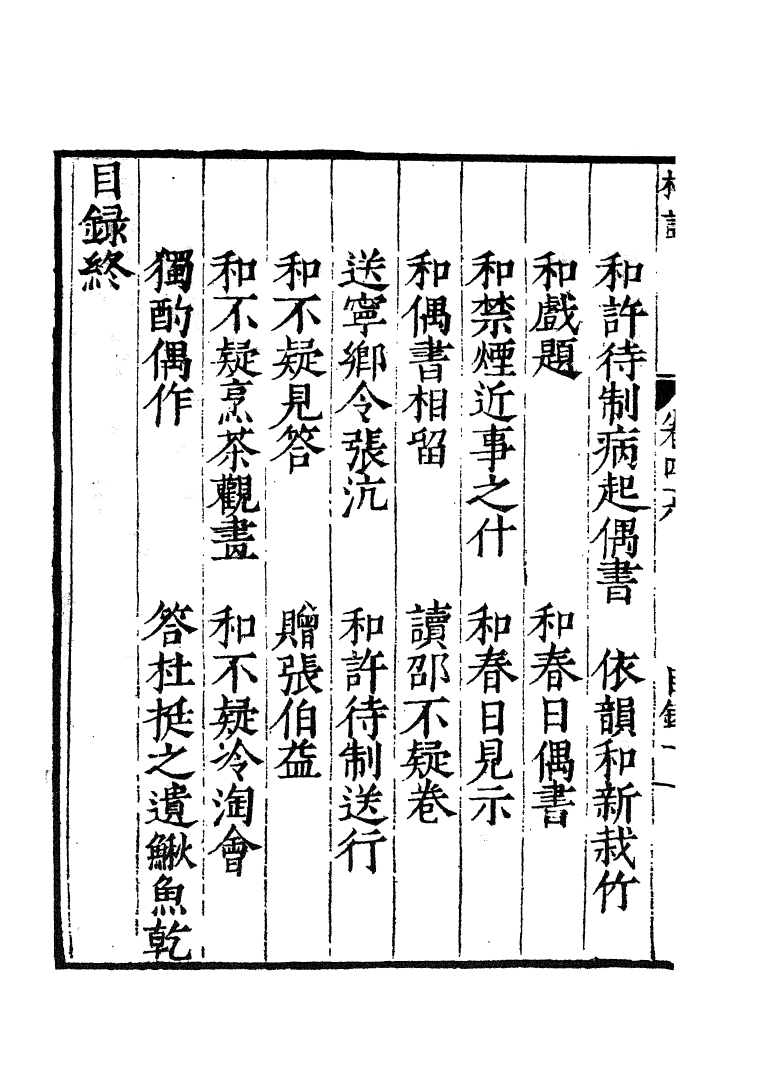 和許待制病起偶書　依韻和新栽竹
和戲題　和春日偶書
和禁煙近事之什　和春日見示
和偶書相留　讀邵不疑卷
送寧鄉令張沆　和許待制送行
和不疑見答　贈張伯益
和不疑烹茶觀畫　和不疑冷淘會
獨酌偶作　答杜挺之遺鰍魚乾
目録終